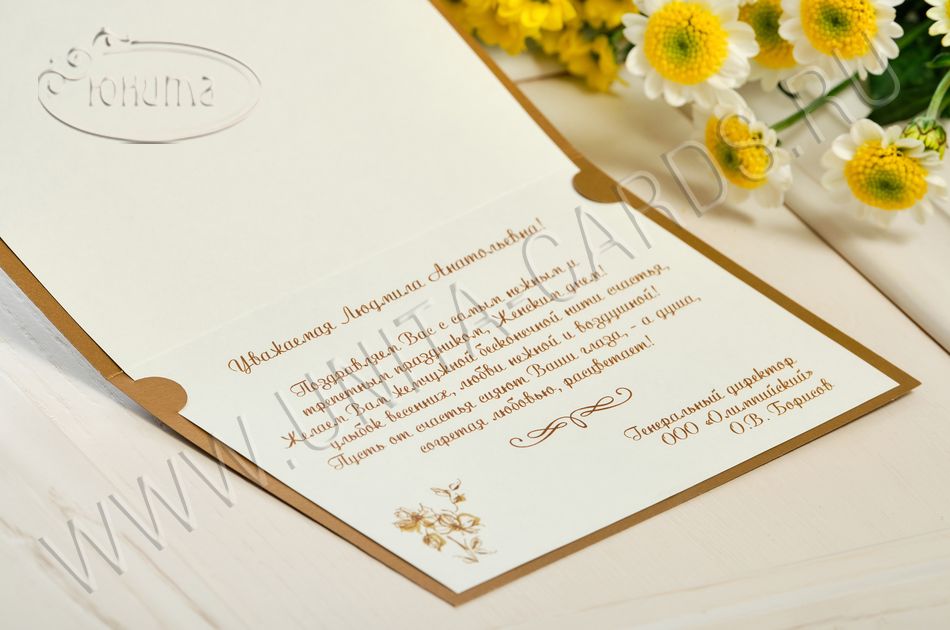 Юнита
Уважаемая Людмила Анатольевна!
Поздравляем Вас с самым нежным и
трепетным праздником, Женским днем!
Желаем Вам жемчужной бесконечной нити счастья,
улыбок весенних, любви нежной и воздушной!
Пусть от счастья сияют Ваши глаза, - а душа,
согретая любовью, расцветает!
Генеральный директор
ООО «Олимпийский»
О.В. Борисов
WWW.UNITA-CARDS.RU